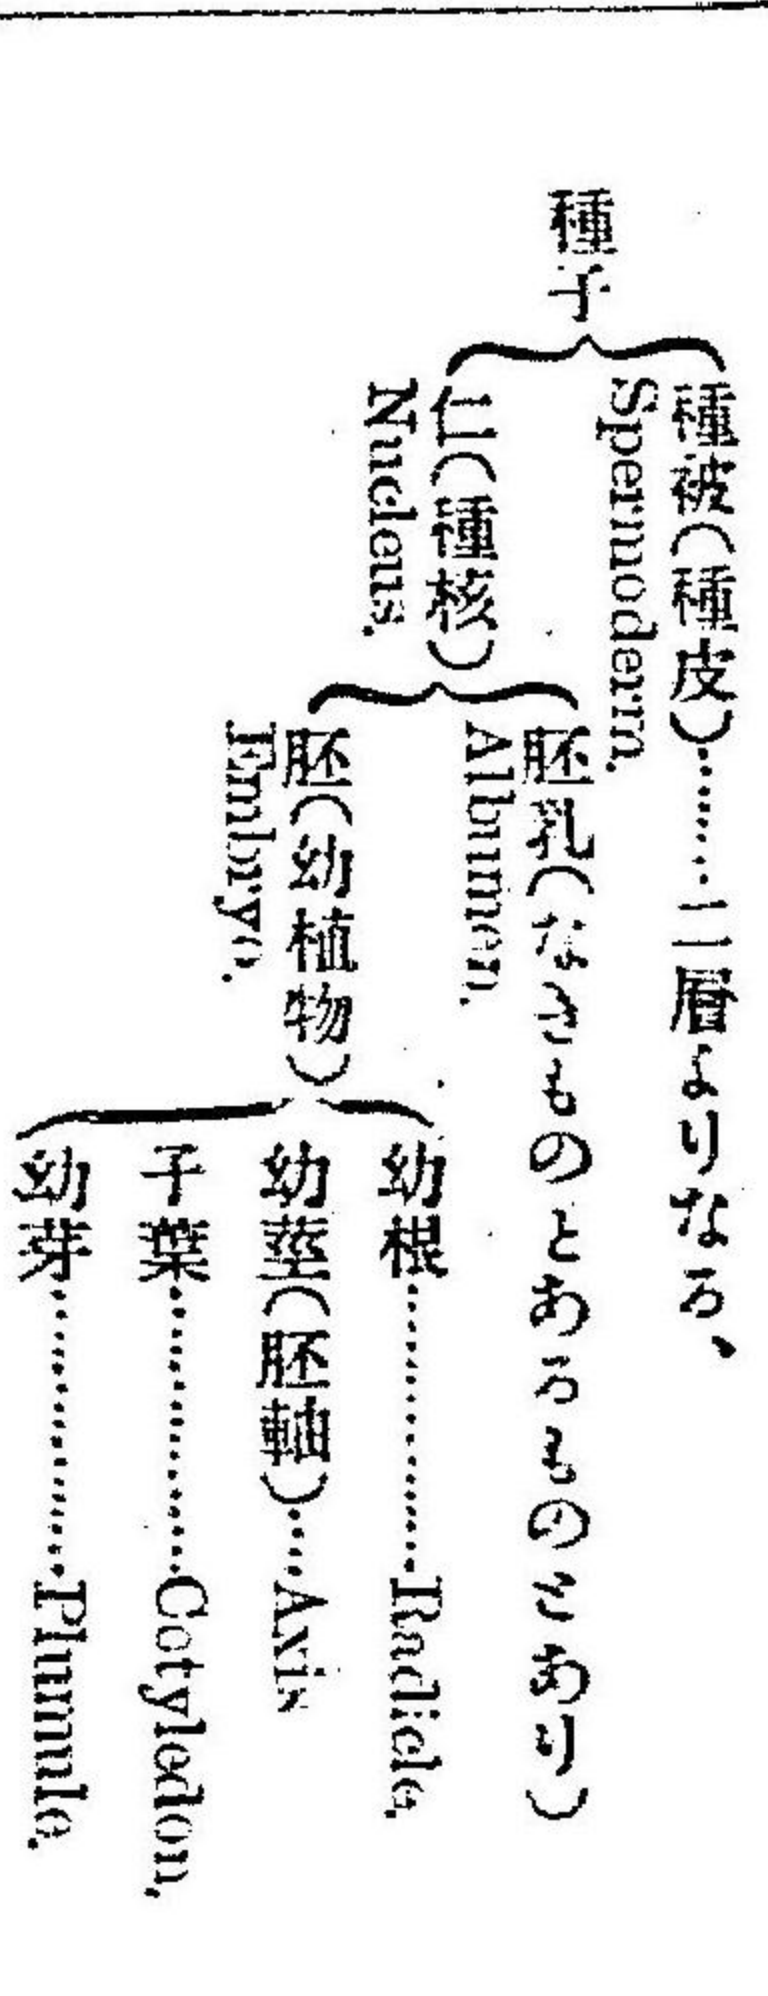 種子
種被(種皮)………二層よりなる、
Spermoderm.
仁(種核)
Nucleus.
胚乳(なきものとあるものとあり)
Albumen.
胚(幼植物)
Embryo.
幼根…………Radicle.
幼莖(胚軸)…Axis
子葉…………Cotyledon.
幼芽…………Plumule.